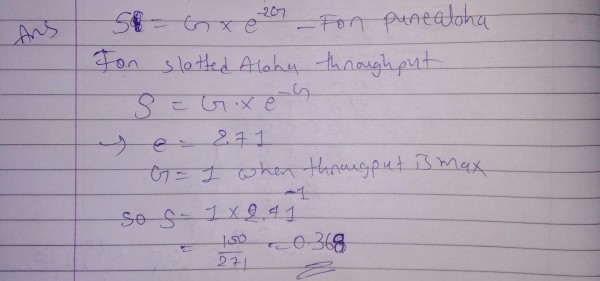 Ans S = G x e^-2G - For pure aloha
For slotted Aloha throughput
S = G x e^-G
→ e = 2.71
G = 1 when througput is max
so S = 1 x 2.71^-1
= 100/271 = 0.368